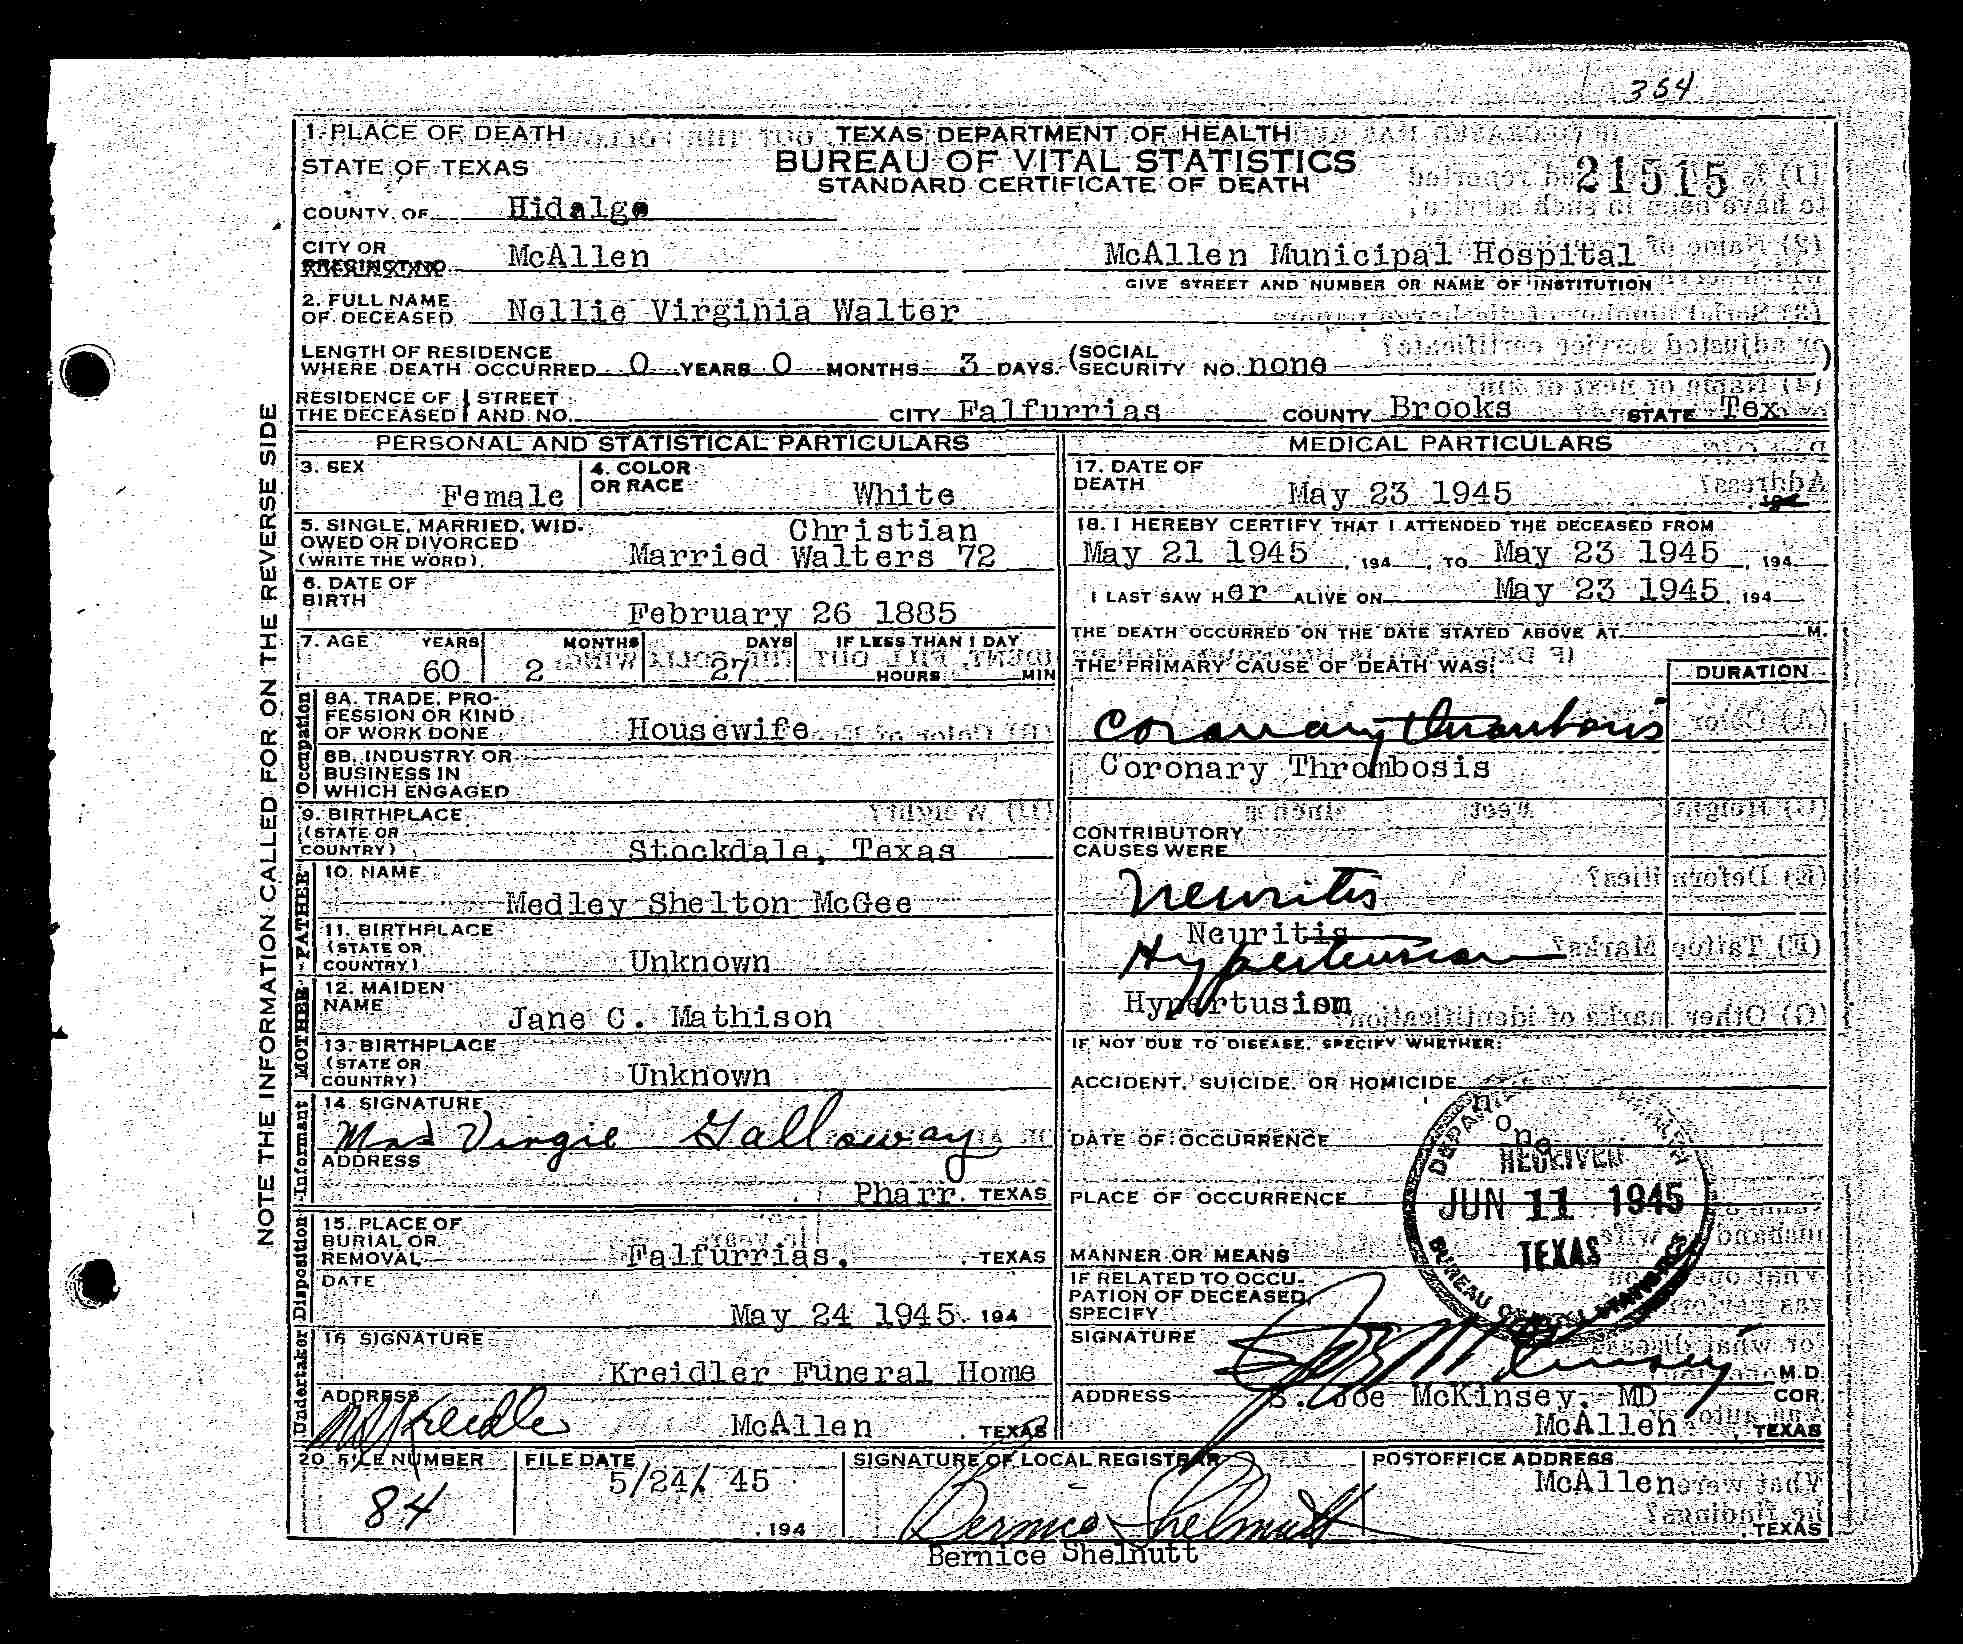 354
1. PLACE OF DEATH
TEXAS DEPARTMENT OF HEALTH
BUREAU OF VITAL STATISTICS
STANDARD CERTIFICATE OF DEATH
21515
STATE OF TEXAS
COUNTY OF Hidalgo
CITY OR PRECINCT NO. McAllen McAllen Municipal Hospital
GIVE STREET AND NUMBER OR NAME OF INSTITUTION
2. FULL NAME OF DECEASED Nellie Virginia Walter
LENGTH OF RESIDENCE WHERE DEATH OCCURRED 0 YEARS 0 MONTHS 3 DAYS. (SOCIAL SECURITY NO. none)
RESIDENCE OF THE DECEASED STREET AND NO. CITY Falfurrias COUNTY Brooks STATE Tex
PERSONAL AND STATISTICAL PARTICULARS
3. SEX Female
4. COLOR OR RACE White
5. SINGLE, MARRIED, WIDOWED OR DIVORCED (WRITE THE WORD). Married Christian Walters 72
6. DATE OF BIRTH February 26 1885
7. AGE YEARS 60 MONTHS 2 DAYS 27 IF LESS THAN 1 DAY HOURS MIN
Occupation
8A. TRADE, PROFESSION OR KIND OF WORK DONE Housewife
8B. INDUSTRY OR BUSINESS IN WHICH ENGAGED
9. BIRTHPLACE (STATE OR COUNTRY) Stockdale, Texas
FATHER
10. NAME Medley Shelton McGee
11. BIRTHPLACE (STATE OR COUNTRY) Unknown
MOTHER
12. MAIDEN NAME Jane C. Mathison
13. BIRTHPLACE (STATE OR COUNTRY) Unknown
Informant
14. SIGNATURE
Mrs Virgie Galloway
ADDRESS
Pharr, TEXAS
Disposition
15. PLACE OF BURIAL OR REMOVAL Falfurrias. , TEXAS
DATE
May 24 1945 , 194
Undertaker
16 SIGNATURE
Kreidler Funeral Home
ADDRESS McAllen , TEXAS
Kreidler
MEDICAL PARTICULARS
17. DATE OF DEATH May 23 1945
18. I HEREBY CERTIFY THAT I ATTENDED THE DECEASED FROM
May 21 1945 , 194 , TO May 23 1945 , 194
I LAST SAW Her ALIVE ON May 23 1945, 194
THE DEATH OCCURRED ON THE DATE STATED ABOVE AT M.
THE PRIMARY CAUSE OF DEATH WAS: DURATION
Coronary thrombosis
Coronary Thrombosis
CONTRIBUTORY CAUSES WERE
Neuritis
Neuritis
Hypertension
Hypertusion
IF NOT DUE TO DISEASE, SPECIFY WHETHER:
ACCIDENT, SUICIDE, OR HOMICIDE
none
DATE OF OCCURRENCE
PLACE OF OCCURRENCE
RECEIVED
JUN 11 1945
TEXAS
MANNER OR MEANS
IF RELATED TO OCCUPATION OF DECEASED, SPECIFY
SIGNATURE M.D.
ADDRESS S. Joe McKinsey, MD COR
McAllen , TEXAS
20 FILE NUMBER 84
FILE DATE 5/24/ 45 , 194
SIGNATURE OF LOCAL REGISTRAR
Bernice Shelnutt
Bernice Shelnutt
POSTOFFICE ADDRESS
McAllen , TEXAS
NOTE THE INFORMATION CALLED FOR ON THE REVERSE SIDE